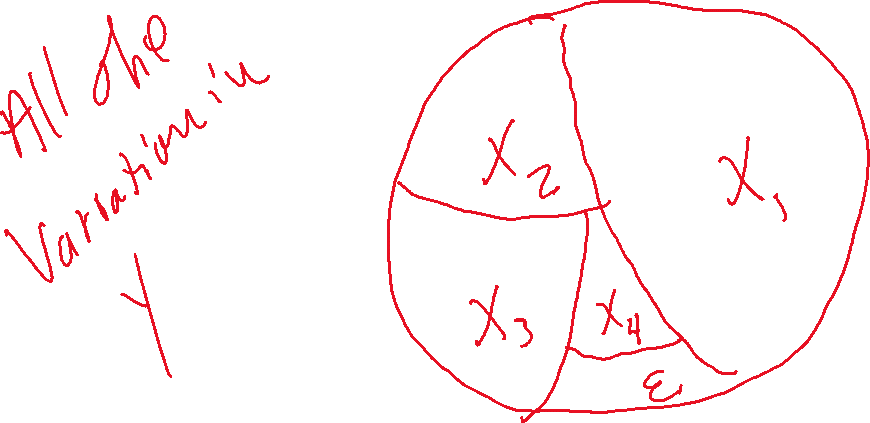 All the
Variation in
Y
X2
X1
X3
X4
ε